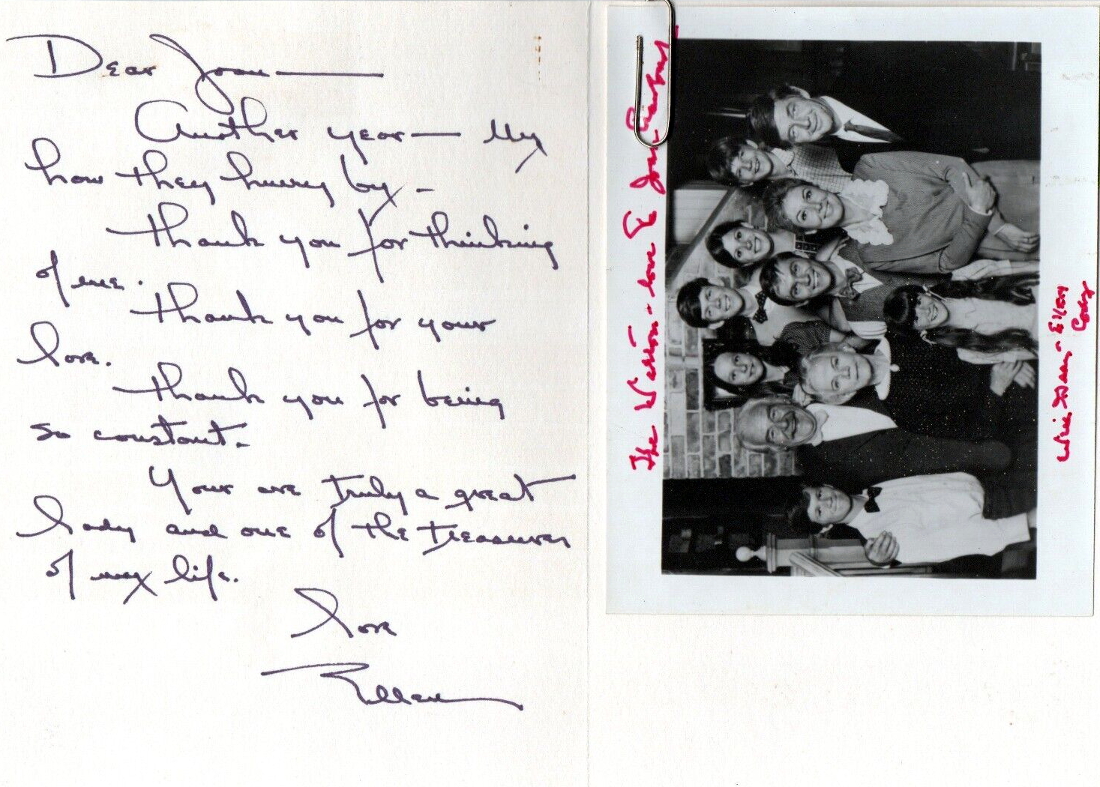 Dear Joan —
Another year — My
how they hurry by —
Thank you for thinking
of me.
Thank you for your
love.
Thank you for being
so constant.
Your are truly a great
Lady and one of the treasures
of my life.
Love
Ellen
The Waltons - love To Joan
Will Geer - Ellen
Corby